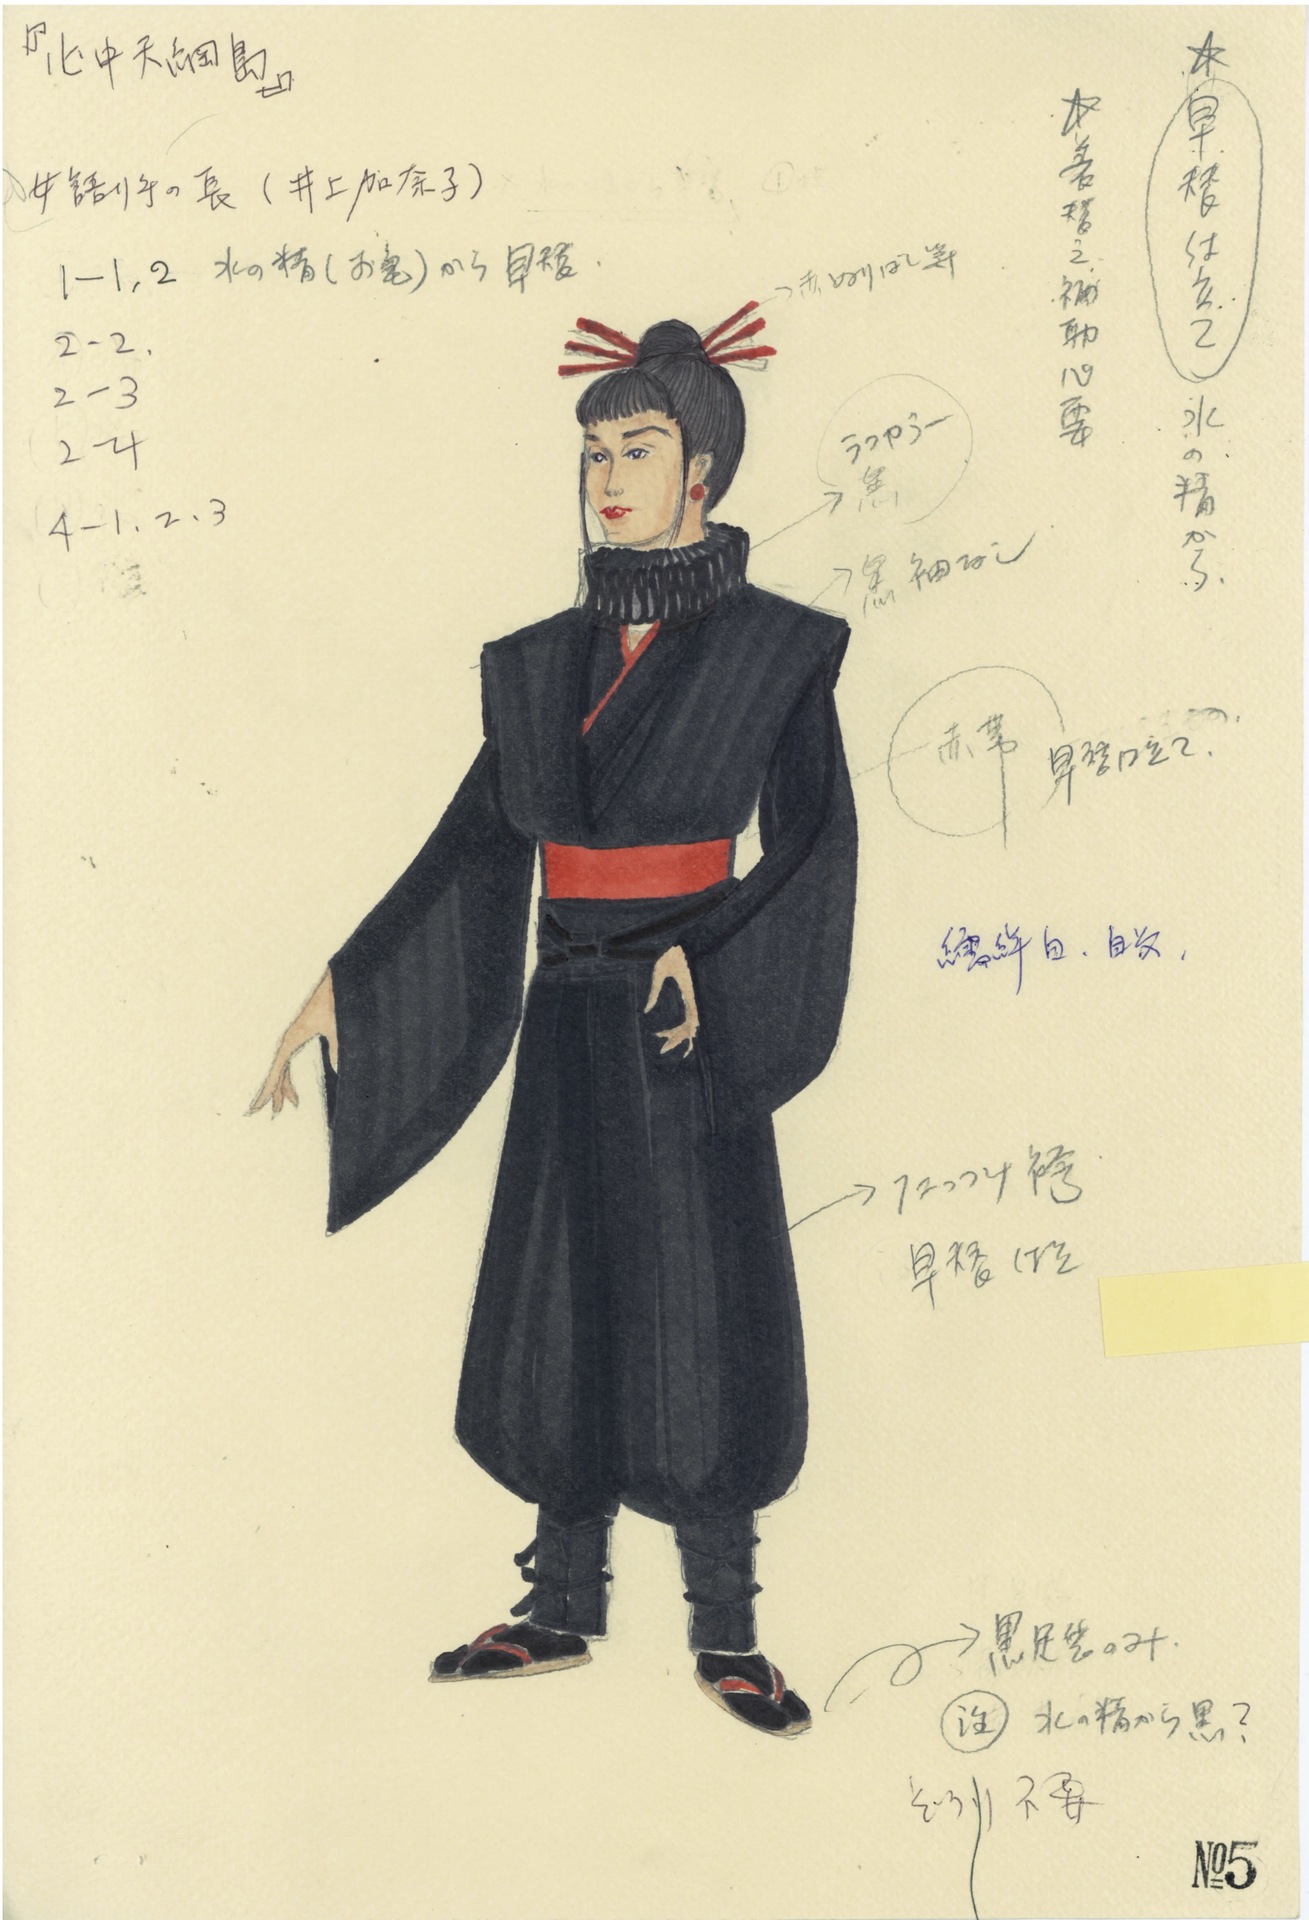 『心中天網島』
女語り手の長（井上加奈子）
1-1,2 水の精(お亀)から早替.
2-2.
2-3
2-4
4-1.2.3
☆早替仕立て 水の精から.
☆着替え補助必要
赤ぬりばし等
黒
黒袖なし
赤帯
早替仕立て.
襦袢白.
たっつけ袴
早替仕立
黒足袋のみ.
注 水の精から黒?
ぞうり不要
No5